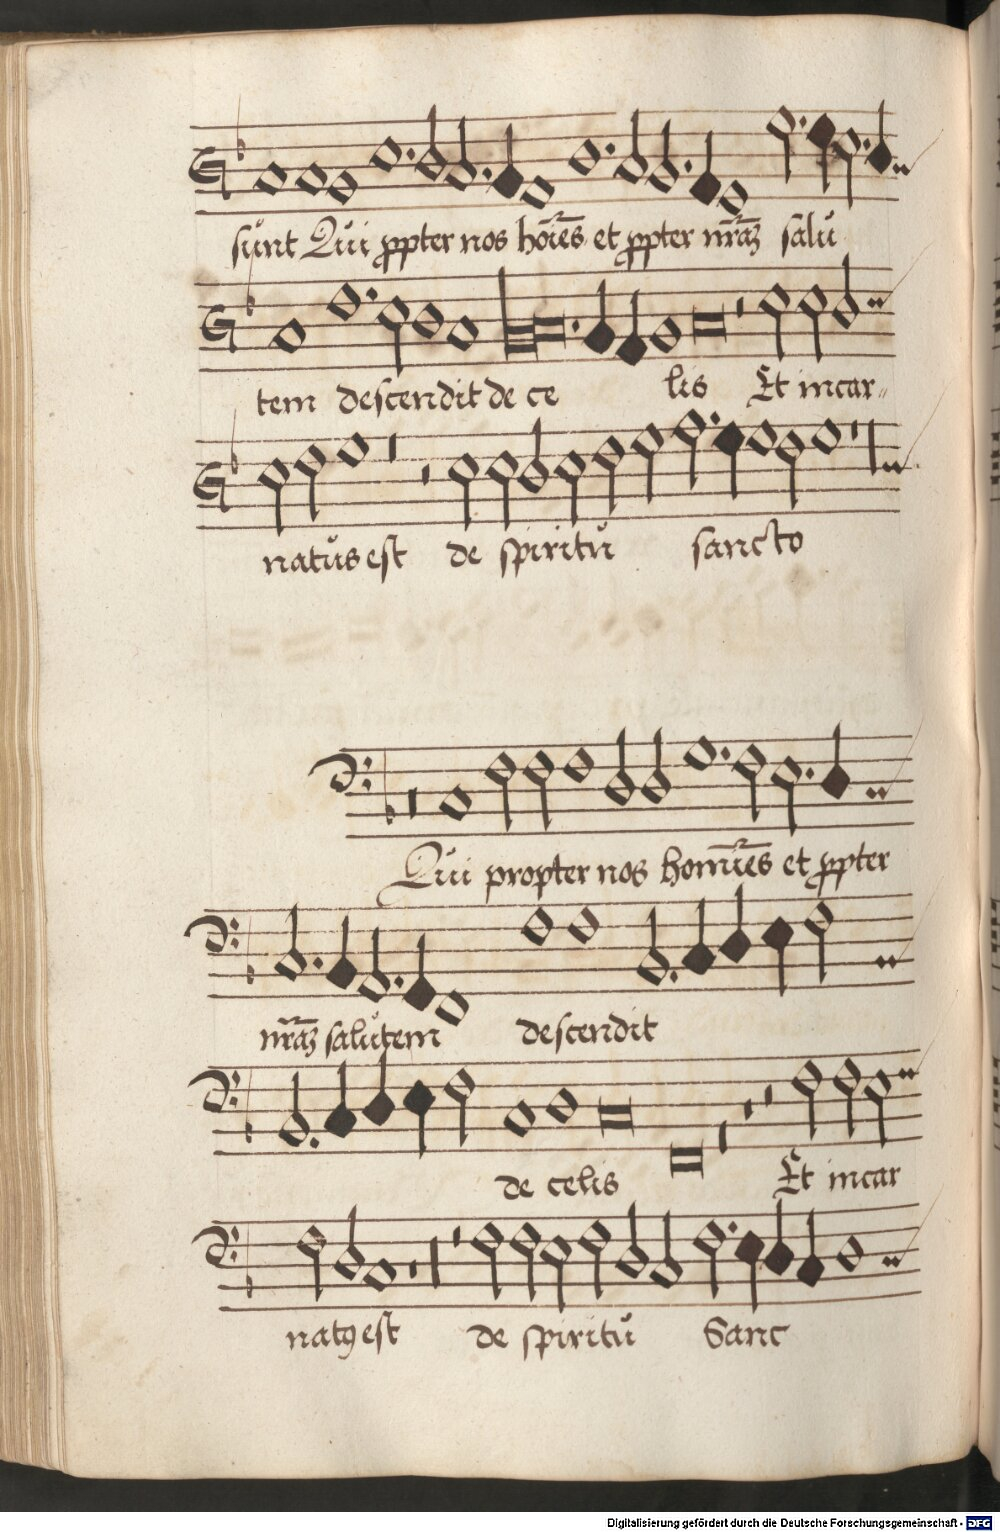 sunt Qui ppter nos hōīēs et ppter nr̄āz salu
tem descendit de ce lis Et incar-
natus est de spiritu sancto
Qui propter nos homīēs et ppter
nr̄āz salutem descendit
de celis Et incar
natꝯ est de spiritu Sanc
Digitalisierung gefördert durch die Deutsche Forschungsgemeinschaft - DFG